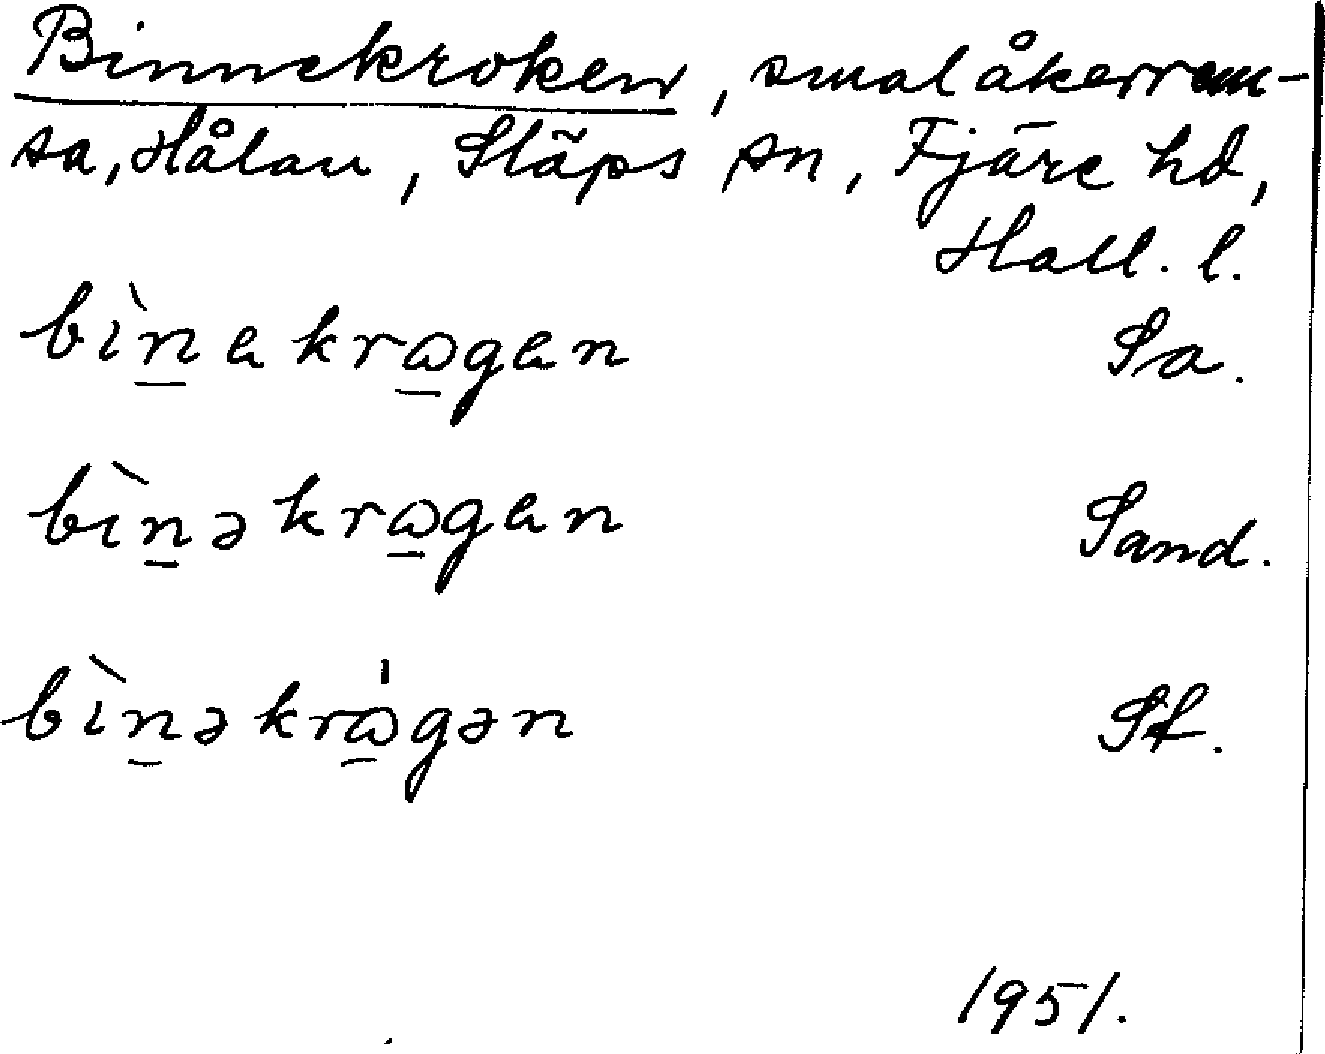 Binnekroken, smal åkerrem-
sa, Hålan, Släps sn, Fjäre hd,
Hall. l.
bìn̲ekrɷ̲gen Sa.
bìn̲əkrɷ̲gen Sand.
bìn̲əkrɷ̲̍gən Sf.
1951.